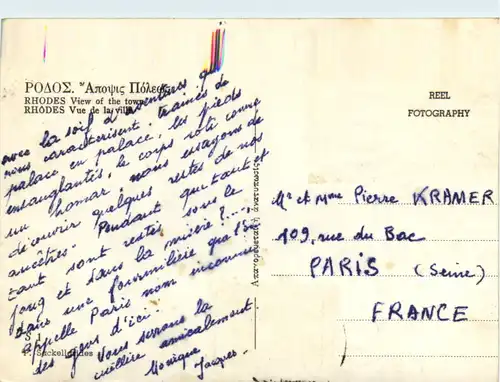 ΡΟΔΟΣ. Ἄποψις Πόλεως
RHODES View of the town
RHODES Vue de la ville
avec la soif d'aventures qui
nous caractérisent, trainés de
palace en palace, les pieds
ensanglantés, le corps rôti comme
un homar, nous essayons de
découvrir quelques restes de nos
ancêtres. Pendant que tant et
tant sont restés sous le
joug et dans la misère ?...,
dans une fourmilière que l'on
appelle Paris nom inconnu
des gens d'ici.
Vous serrons la
cuillère amicalement
Monique
Jacques
REEL
FOTOGRAPHY
Ἀπαγορεύεται ἡ ἀνατύπωσις
Mr et Mme Pierre KRAMER
109, rue du Bac
PARIS (Seine)
FRANCE